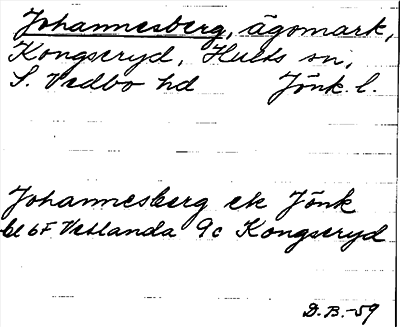 Johannesberg, ägomark,
Kongseryd, Hults sn,
S. Vedbo hd Jönk. l.
Johannesberg ek Jönk
bl 6F Vetlanda 9c Kongseryd
D.B.-59